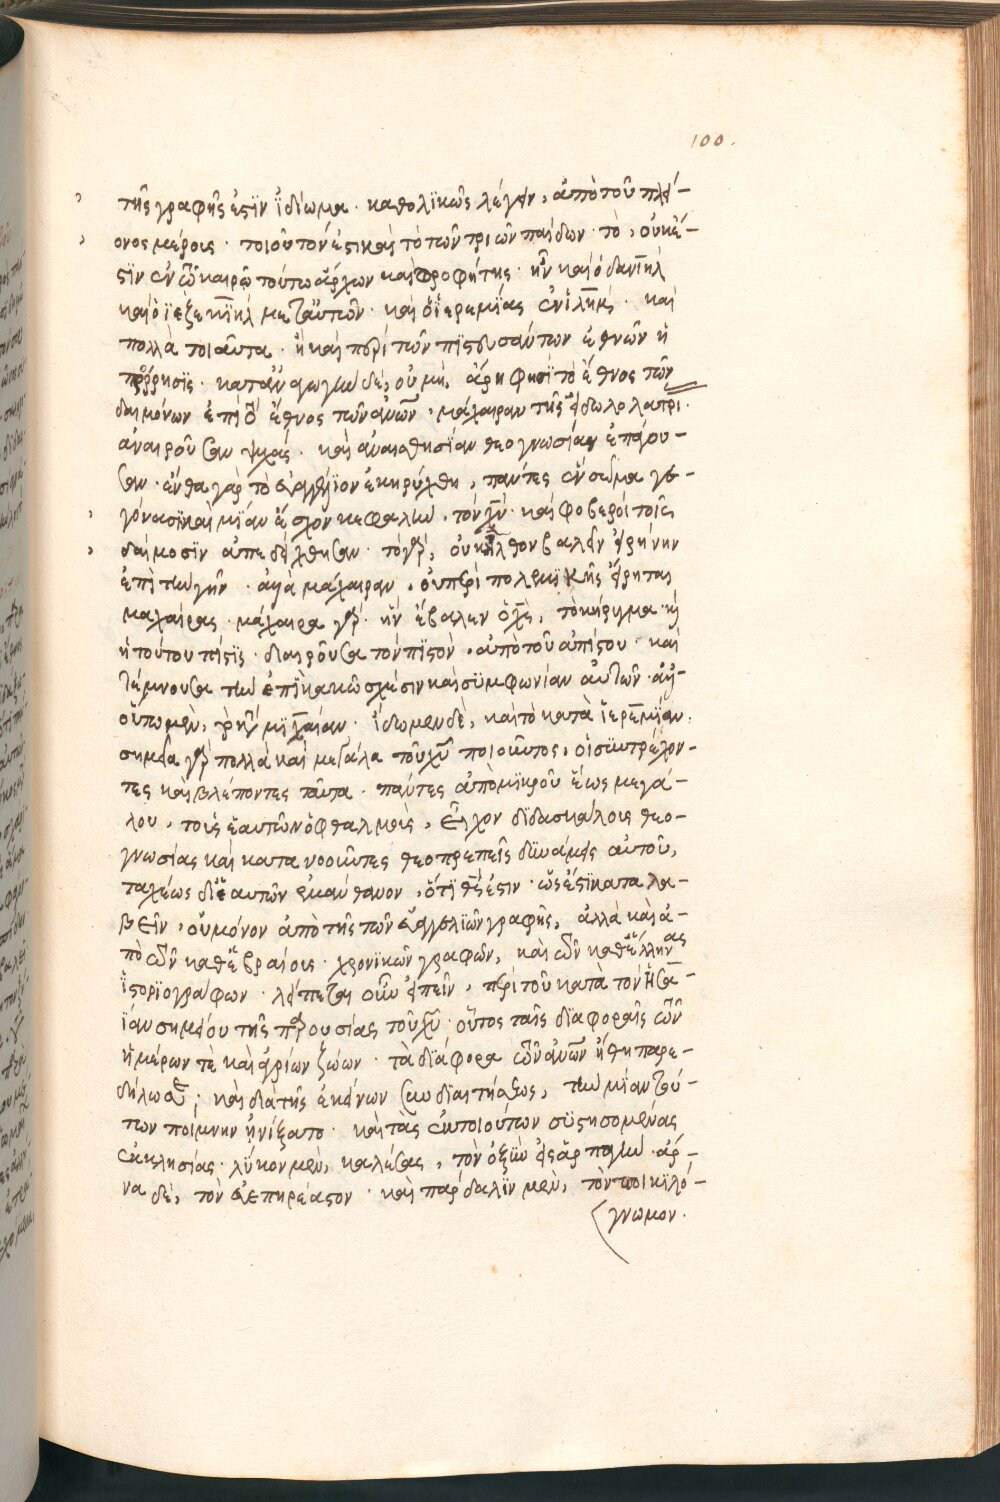 100.
τῆς γραφῆς ἐστὶν ἰδίωμα · καθολικῶς λέγειν, ἀπὸ τοῦ πλεί-
ονος μέρους · τοιοῦτον ἐστι καὶ τὸ τῶν τριῶν παίδων · τὸ, οὐκ ἔ-
στιν ἐν τῶ καιρῶ τούτω ἄρχων καὶ προφήτης · ἦν καὶ ὁ δανιὴλ
καὶ ὁ ἰεζεκιὴλ μετ' αὐτῶν · καὶ ὁ ἱερεμίας ἐν ἰλημ · καὶ
πολλὰ τοιαῦτα · ἢ καὶ περὶ τῶν πιστευσάντων ἐθνῶν ἡ
πρόρρησις · κατ' ἀναγωγὴν δὲ, οὐ μὴ ἄρη φησὶ τὸ ἔθνος τῶν
δαιμόνων ἐπὶ τὸ ἔθνος τῶν ἀνων · μάχαιραν τῆς εἰδωλολατρι ·
ἀναιροῦσαν ψυχάς · καὶ ἀναισθησίαν θεογνωσίας ἐπάγου-
σαν · ἔνθα γὰρ τὸ εὐαγγέλιον ἐκηρύχθη, πάντες ἓν σῶμα γε-
γόνασι καὶ μίαν ἔσχον κεφαλὴν · τὸν χν · καὶ φοβεροὶ τοῖς
δαίμοσιν ἀπεδείχθησαν · τὸ γὰρ, οὐκ ἦλθον βαλεῖν εἰρήνην
ἐπὶ τὴν γῆν · ἀλλὰ μάχαιραν, οὐ περὶ πολεμικῆς εἴρηται
μαχαίρας · μάχαιρα γὰρ ἣν ἔβαλεν ὁ χς, τὸ κήρυγμα · ἢ
ἡ τούτου πίστις · διαιροῦσα τὸν πιστὸν, ἀπὸ τοῦ ἀπίστου · καὶ
τέμνουσα τὴν ἐπὶ κακῶ σχέσιν καὶ συμφωνίαν αὐτῶν · ἀλλ'
οὕτω μὲν, μιχαίαν · ἴδωμεν δὲ, καὶ τὸ κατὰ ἱερεμίαν ·
σημεῖα γὰρ πολλὰ καὶ μεγάλα τοῦ χυ ποιοῦντος, οἱ συντρέχον-
τες καὶ βλέποντες ταῦτα · πάντες ἀπὸ μικροῦ ἕως μεγά-
λου, τοὺς ἑαυτῶν ὀφθαλμοὺς, εἶχον διδασκάλους θεο-
γνωσίας καὶ κατανοοῦντες θεοπρεπεῖς δυνάμεις αὐτοῦ,
ταχέως δι' ἑαυτῶν ἐμάνθανον, ὅτι θς ἐστιν · ὡς ἔστι καταλα-
βεῖν, οὐ μόνον ἀπὸ τῆς τῶν εὐαγγελίων γραφῆς, ἀλλὰ καὶ ἀ-
πὸ τῶν καθ' ἑβραίους · χρονικῶν γραφῶν, καὶ τῶν καθ' ἕλληνας
ἱστοριογράφων · λείπεται οὖν εἰπεῖν, περὶ τοῦ κατὰ τὸν ἡσα-
ΐαν σημείου τῆς παρουσίας τοῦ χυ · οὗτος ταῖς διαφοραῖς τῶν
ἡμέρων τε καὶ ἀγρίων ζώων · τὰ διάφορα τῶν ἀνων ἤθη παρε-
δήλωσε; καὶ διὰ τῆς ἐκείνων συνδιαιτήσεως, τὴν μίαν τού-
των ποίμνην ἠνίξατο · καὶ τὰς ἐκ τοιούτων συστησομένας
ἐκκλησίας · λύκον μὲν, καλέσας, τὸν ὀξὺν εἰς ἁρπαγὴν · ἄρ-
να δὲ, τὸν ἀνεπηρέαστον · καὶ πάρδαλιν μὲν, τὸν ποικιλό-
γνωμον ·